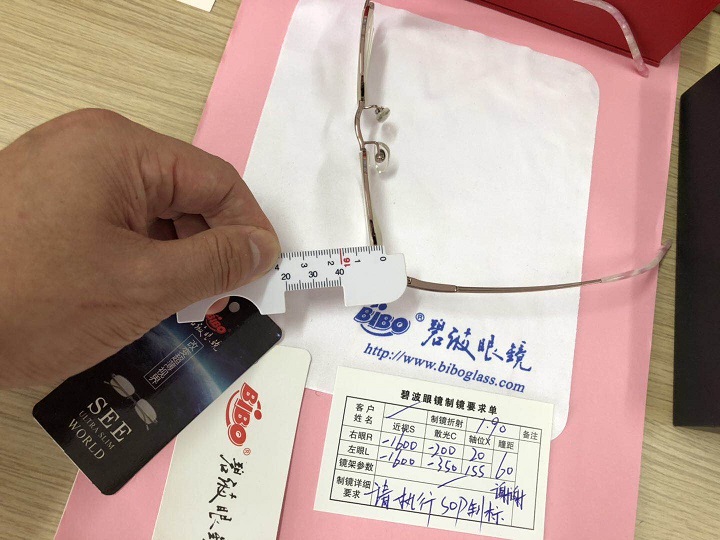 4 3 2 1 0
16
20 30 40
BiBO
BiBO® 碧波眼鏡
http://www.biboglass.com
BiBO
改变超薄视界
SEE
ULTRA SLIM
WORLD
BiBO®
碧波眼鏡
碧波眼镜制镜要求单
客户姓名 制镜折射 1.90 备注
近视S 散光C 轴位X 瞳距
右眼R -1600 -200 20
左眼L -1600 -350 155 60
镜架参数
制镜详细要求 请执行SOP制标 谢谢